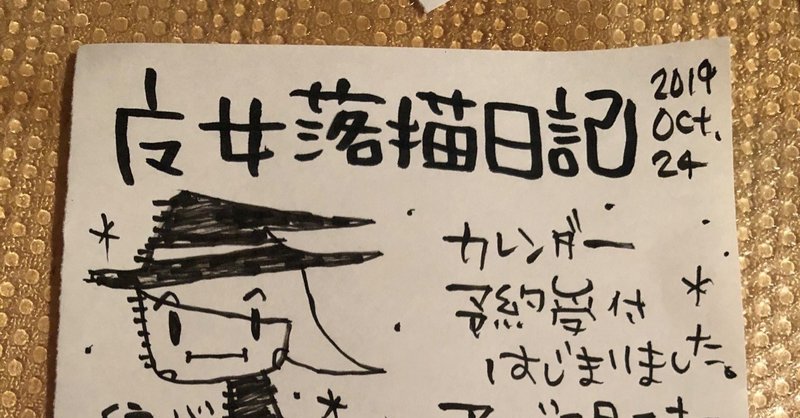 魔女落描日記
2019
Oct.
24
カレンダー
予約受付
はじまりました。